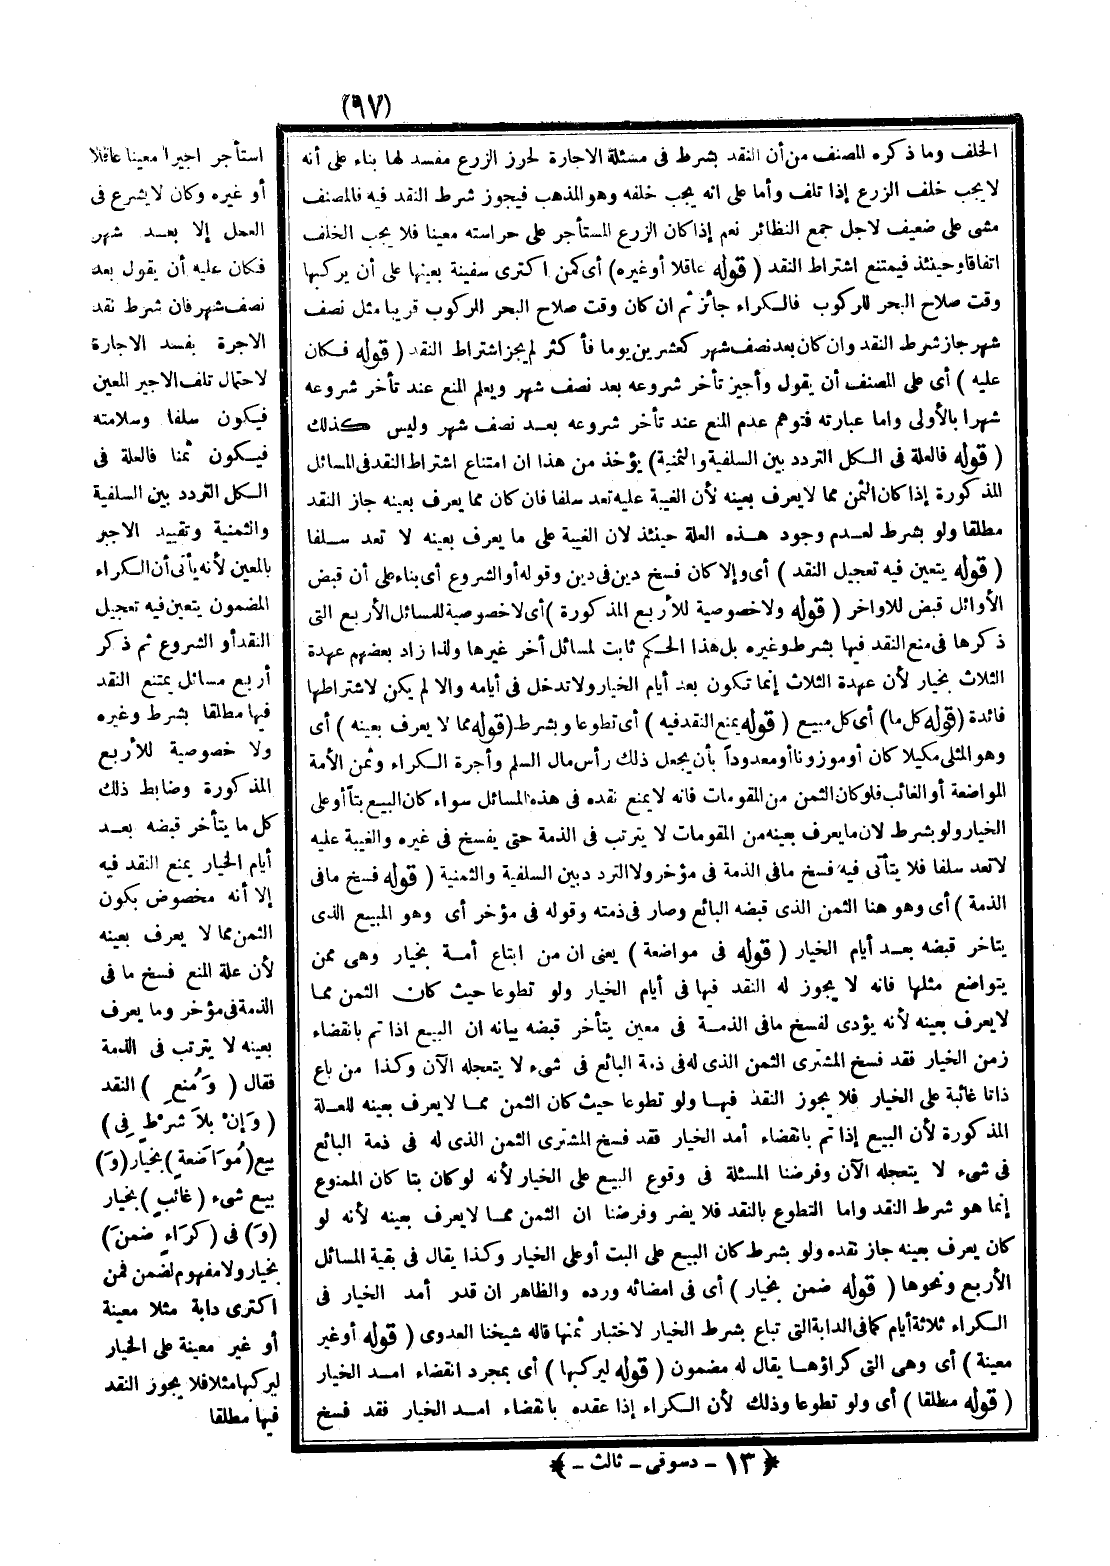 (٩٧)
الخلف وما ذكره المصنف من أن النقد بشرط فى مسئلة الاجارة لحرز الزرع مفسد لها بناء على أنه
لا يجب خلف الزرع إذا تلف وأما على انه يجب خلفه وهو المذهب فيجوز شرط النقد فيه فالمصنف
مشى على ضعيف لاجل جمع النظائر نعم إذا كان الزرع المستأجر على حراسته معينا فلا يجب الخلف
اتفاقا وحينئذ فيمتنع اشتراط النقد ( قوله عاقلا أو غيره) أى كمن اكترى سفينة بعينها على أن يركبها
وقت صلاح البحر للركوب فالكراء جائز ثم ان كان وقت صلاح البحر للركوب قريبا مثل نصف
شهر جاز شرط النقد وان كان بعد نصف شهر كعشرين يوما فأكثر لم يجز اشتراط النقد ( قوله فكان
عليه ) أى على المصنف أن يقول وأجيز تأخر شروعه بعد نصف شهر ويعلم المنع عند تأخر شروعه
شهرا بالأولى واما عبارته فتوهم عدم المنع عند تأخر شروعه بعد نصف شهر وليس كذلك
( قوله فالعلة فى الكل التردد بين السلفية والثمنية) يؤخذ من هذا ان امتناع اشتراط النقد فى المسائل
المذكورة إذا كان الثمن مما لا يعرف بعينه لأن الغيبة عليه تعد سلفا فان كان مما يعرف بعينه جاز النقد
مطلقا ولو بشرط لعدم وجود هذه العلة حينئذ لان الغيبة على ما يعرف بعينه لا تعد سلفا
( قوله يتعين فيه تعجيل النقد ) أى وإلا كان فسخ دين فى دين وقوله أو الشروع أى بناء على أن قبض
الأوائل قبض للاواخر ( قوله ولا خصوصية للأربع المذكورة ) أى لا خصوصية للمسائل الأربع التى
ذكرها فى منع النقد فيها بشرط وغيره بل هذا الحكم ثابت لمسائل أخر غيرها ولذا زاد بعضهم عهدة
الثلاث بخيار لأن عهدة الثلاث إنما تكون بعد أيام الخيار ولا تدخل فى أيامه والا لم يكن لاشتراطها
فائدة ( قوله كل ما) أى كل مبيع ( قوله يمنع النقد فيه ) أى تطوعا وبشرط (قوله مما لا يعرف بعينه ) أى
وهو المثلى مكيلا كان أو موزونا أو معدوداً بأن يجعل ذلك رأس مال السلم وأجرة الكراء وثمن الأمة
المواضعة أو الغائب فلو كان الثمن من المقومات فانه لا يمنع نقده فى هذه المسائل سواء كان البيع بتاً أو على
الخيار ولو بشرط لان ما يعرف بعينه من المقومات لا يترتب فى الذمة حتى يفسخ فى غيره والغيبة عليه
لا تعد سلفا فلا يتأتى فيه فسخ مافى الذمة فى مؤخر ولا التردد بين السلفية والثمنية ( قوله فسخ مافى
الذمة ) أى وهو هنا الثمن الذى قبضه البائع وصار فى ذمته وقوله فى مؤخر أى وهو المبيع الذى
يتاخر قبضه بعد أيام الخيار ( قوله فى مواضعة ) يعنى ان من ابتاع أمة بخيار وهى ممن
يتواضع مثلها فانه لا يجوز له النقد فيها فى أيام الخيار ولو تطوعا حيث كان الثمن مما
لا يعرف بعينه لأنه يؤدى لفسخ مافى الذمة فى معين يتأخر قبضه بيانه ان البيع اذا تم بانقضاء
زمن الخيار فقد فسخ المشترى الثمن الذى له فى ذمة البائع فى شىء لا يتعجله الآن وكذا من باع
ذاتا غائبة على الخيار فلا يجوز النقد فيها ولو تطوعا حيث كان الثمن مما لا يعرف بعينه للعلة
المذكورة لأن البيع إذا تم بانقضاء أمد الخيار فقد فسخ المشترى الثمن الذى له فى ذمة البائع
فى شىء لا يتعجله الآن وفرضنا المسئلة فى وقوع البيع على الخيار لأنه لو كان بتا كان الممنوع
إنما هو شرط النقد واما التطوع بالنقد فلا يضر وفرضنا ان الثمن مما لا يعرف بعينه لأنه لو
كان يعرف بعينه جاز نقده ولو بشرط كان البيع على البت أو على الخيار وكذا يقال فى بقية المسائل
الأربع ونحوها ( قوله ضمن بخيار ) أى فى امضائه ورده والظاهر ان قدر أمد الخيار فى
الكراء ثلاثة أيام كما فى الدابة التى تباع بشرط الخيار لاختبار ثمنها قاله شيخنا العدوى ( قوله أو غير
معينة ) أى وهى التى كراؤها يقال له مضمون ( قوله ليركبها ) أى بمجرد انقضاء امد الخيار
( قوله مطلقا ) أى ولو تطوعا وذلك لأن الكراء إذا عقده بانقضاء امد الخيار فقد فسخ
استأجر اجيرا معينا عاقلا
أو غيره وكان لا يشرع فى
العمل إلا بعد شهر
فكان عليه أن يقول بعد
نصف شهر فان شرط نقد
الاجرة يفسد الاجارة
لاحتمال تلف الاجير المعين
فيكون سلفا وسلامته
فيكون ثمنا فالعلة فى
الكل التردد بين السلفية
والثمنية وتقييد الاجير
بالمعين لأنه يأتى أن الكراء
المضمون يتعين فيه تعجيل
النقد أو الشروع ثم ذكر
أربع مسائل يمتنع النقد
فيها مطلقا بشرط وغيره
ولا خصوصية للأربع
المذكورة وضابط ذلك
كل ما يتأخر قبضه بعد
أيام الخيار يمنع النقد فيه
إلا أنه مخصوص بكون
الثمن مما لا يعرف بعينه
لأن علة المنع فسخ ما فى
الذمة فى مؤخر وما يعرف
بعينه لا يترتب فى الذمة
فقال ( وَمُنع ) النقد
( وَإنْ بلاَ شرْطٍ فِى )
بيع (مُوَاضَعةٍ ) بخيار (وَ)
بيع شىء ( غائبٍ ) بخيار
(وَ) فى (كرَاءٍ ضمنَ)
بخيار ولا مفهوم لضمن فمن
اكترى دابة مثلا معينة
أو غير معينة على الخيار
ليركبها مثلا فلا يجوز النقد
فيها مطلقا
﴿ ١٣ - دسوقى - ثالث - ﴾